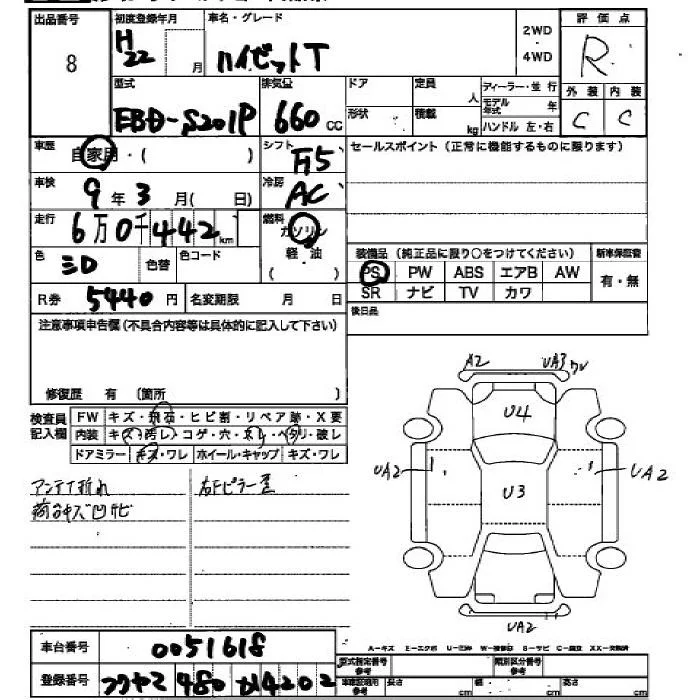 出品番号
8
初度登録年月
H22
月
車名・グレード
ハイゼットT
2WD
4WD
評価点
R
外装
内装
C
C
型式
EBD-S201P
排気量
660 cc
ドア
形状
定員
人
積載
kg
ディーラー・並行
モデル年式
年
ハンドル 左・右
車歴
自家用・( )
シフト
F5
セールスポイント(正常に機能するものに限ります)
車検
9年3月( 日)
冷房
AC
走行
6万0千442km
燃料
ガソリン
軽・油
( )
色
シロ
色替
色コード
装備品(純正品に限り○をつけてください)
新車保証書
PS
PW
ABS
エアB
AW
有・無
SR
ナビ
TV
カワ
R券
5440円
名変期限 月 日
後日品
注意事項申告欄(不具合内容等は具体的に記入して下さい)
修復歴 有 〔箇所 〕
検査員記入欄
FW
キズ・飛石・ヒビ割・リペア跡・X要
内装
キズ・汚レ・コゲ・穴・スレ・ヘタリ・破レ
ドアミラー
キズ・ワレ
ホイール・キャップ
キズ・ワレ
アンテナ折れ
荷台キズ凹サビ
右Fピラー歪
A2
UA3 ワレ
U4
UA2
U3
UA2
UA2
車台番号
0051618
登録番号
フクヤマ 480
4202
A-キズ E-エクボ U-凹み W-補修跡 S-サビ C-腐食 XX-交換済
型式指定番号
参考
類別区分番号
参考
車庫証明用
参考
長さ
cm
幅
cm
高さ
cm